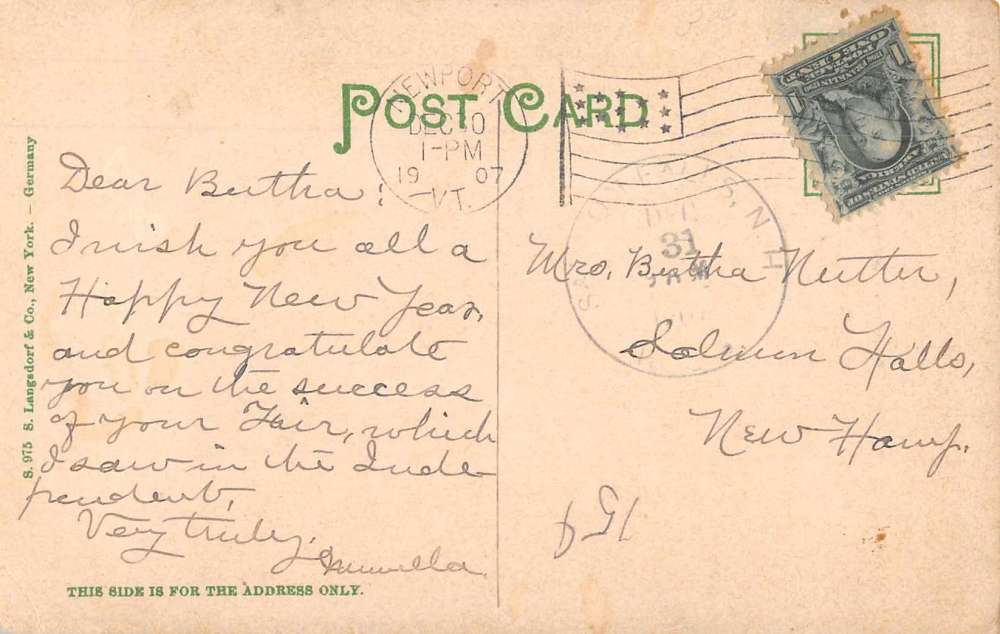 POST CARD
NEWPORT
DEC 30
1-PM
1907
VT.
SALMON FALLS, N.H.
31
AM
ONE CENT
1
1
Dear Bertha:
I wish you all a
Happy New Year,
and congratulate
you on the success
of your Fair, which
I saw in the Inde-
pendent,
Very truly,
Mrs. Bertha Nutter,
Salmon Falls,
New Hamp.
15¢
S. 975 S. Langsdorf & Co., New York. – Germany
THIS SIDE IS FOR THE ADDRESS ONLY.